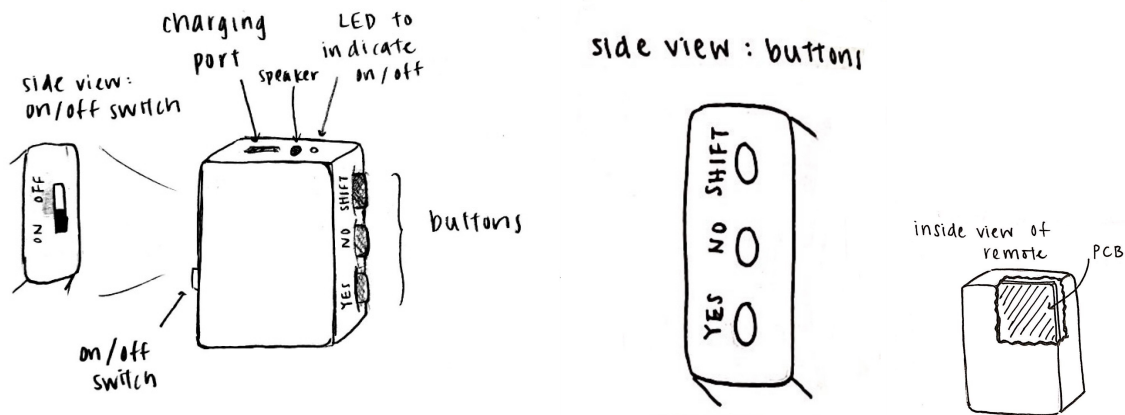 charging
port
speaker
LED to
indicate
on/off
side view:
on/off switch
OFF
ON
SHIFT
NO
YES
buttons
on/off
switch
side view: buttons
SHIFT
NO
YES
inside view of
remote
PCB